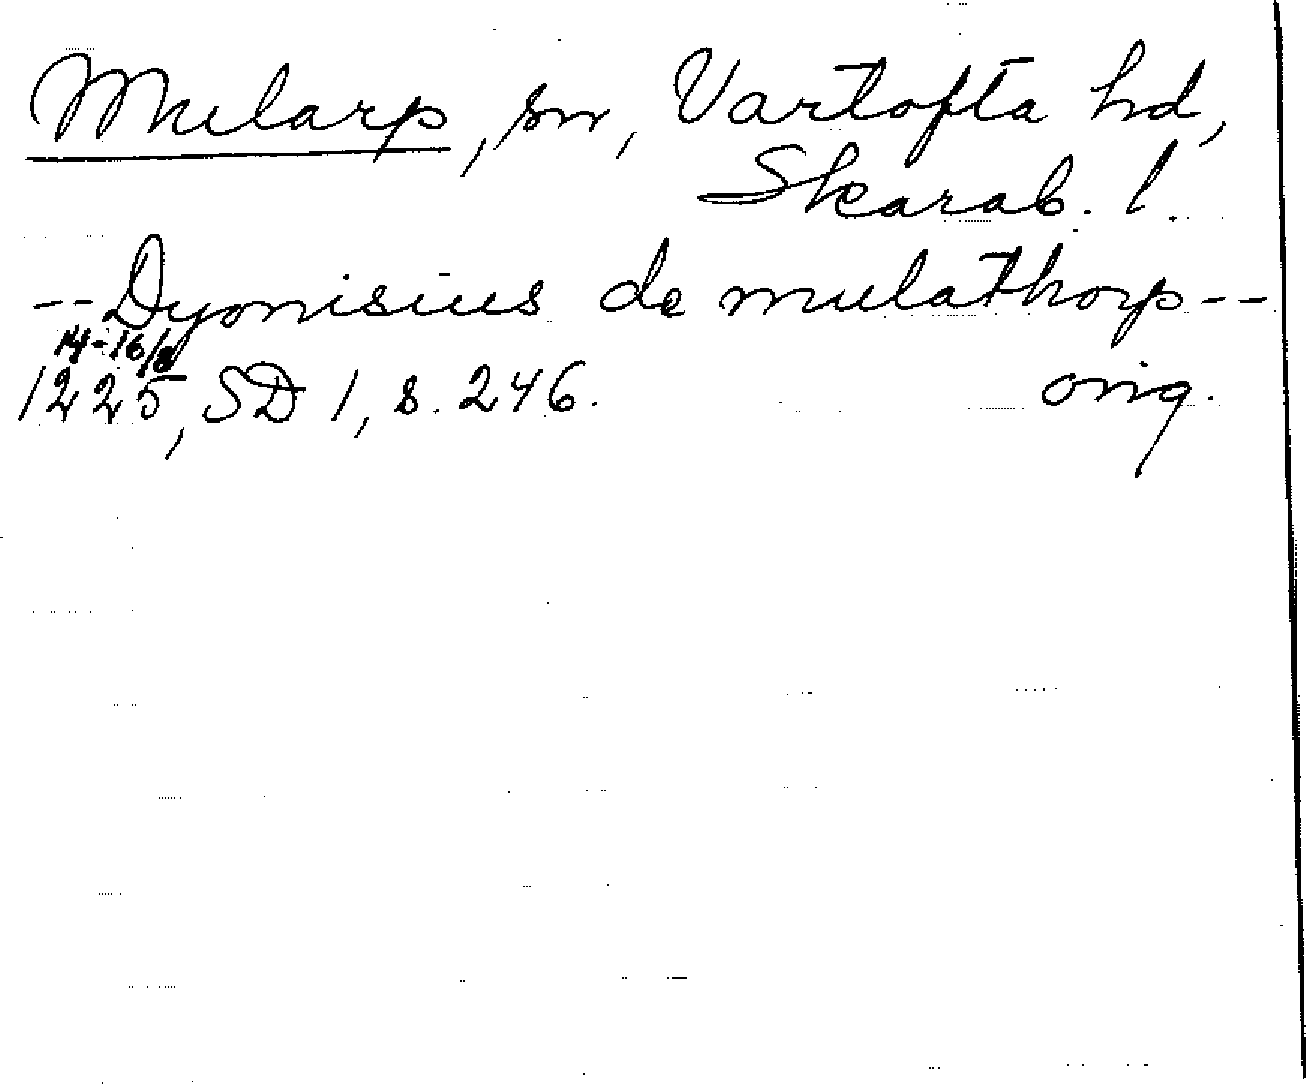 Mularp, sn, Vartofta hd,
Skarab. l.
--Dyonisius de mulathorp--
14-16/8
1225, SD 1, s. 246. orig.